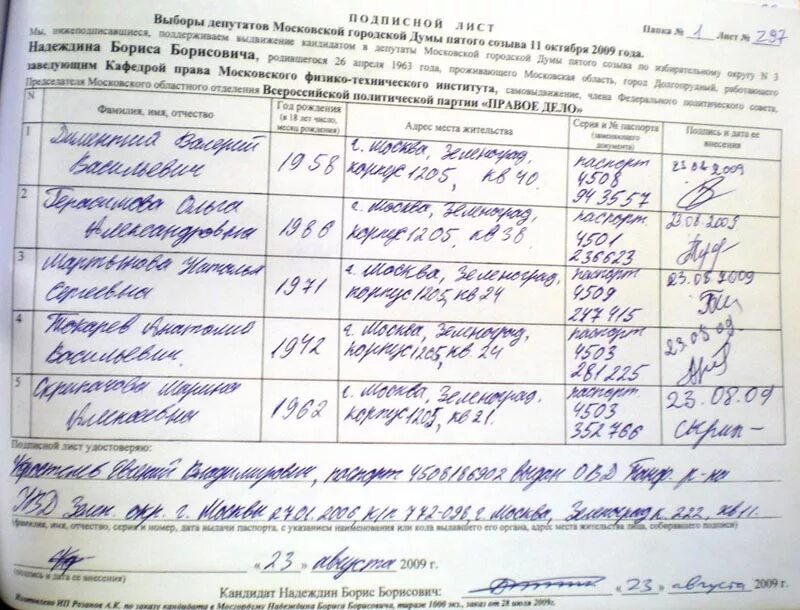 ПОДПИСНОЙ ЛИСТ
Папка № 1 Лист № 297
Выборы депутатов Московской городской Думы пятого созыва 11 октября 2009 года.
Мы, нижеподписавшиеся, поддерживаем выдвижение кандидатом в депутаты Московской городской Думы пятого созыва по избирательному округу № 3
Надеждина Бориса Борисовича, родившегося 26 апреля 1963 года, проживающего Московская область, город Долгопрудный, работающего
заведующим Кафедрой права Московского физико-технического института, самовыдвижение, члена Федерального политического совета,
Председателя Московского областного отделения Всероссийской политической партии «ПРАВОЕ ДЕЛО»
N Фамилия, имя, отчество Год рождения (в 18 лет число, месяц рождения) Адрес места жительства Серия и № паспорта (заменяющего документа) Подпись и дата ее внесения
1 Дилентий Валерий Васильевич 1958 г. Москва, Зеленоград, корпус 1205, кв 40. паспорт 4508 943557 23.08.2009
2 Герасимова Ольга Александровна 1986 г. Москва, Зеленоград, корпус 1205, кв 38. паспорт 4501 236623 23.08.2009
3 Мартынова Наталья Сергеевна 1971 г. Москва, Зеленоград, корпус 1205, кв 24 паспорт 4509 247415 23.08.2009
4 Токарев Анатолий Васильевич. 1942 г. Москва, Зеленоград, корпус 1205, кв. 24 паспорт 4503 281225 23.08 09.
5 Марина 1962 г. Москва, Зеленоград, корпус 1205, кв 21. паспорт 4503 352766 23.08.09
Подписной лист удостоверяю:
Евгений Владимирович, паспорт 4508186902 выдан ОВД р-на
УВД Зелен. окр. г. Москвы 27.01.2006, к/п 772-098, г. Москва, Зеленоград к. 222, кв 11.
(фамилия, имя, отчество, серия и номер, дата выдачи паспорта, с указанием наименования или кода выдавшего его органа, адрес места жительства лица, собиравшего подписи)
« 23 » августа 2009 г.
(подпись и дата ее внесения)
Кандидат Надеждин Борис Борисович: « 23 » августа 2009 г.
Изготовлено ИП Розанов А.К. по заказу кандидата в Мосгордуму Надеждина Бориса Борисовича, тираж 1000 экз., заказ от 28 июля 2009г.